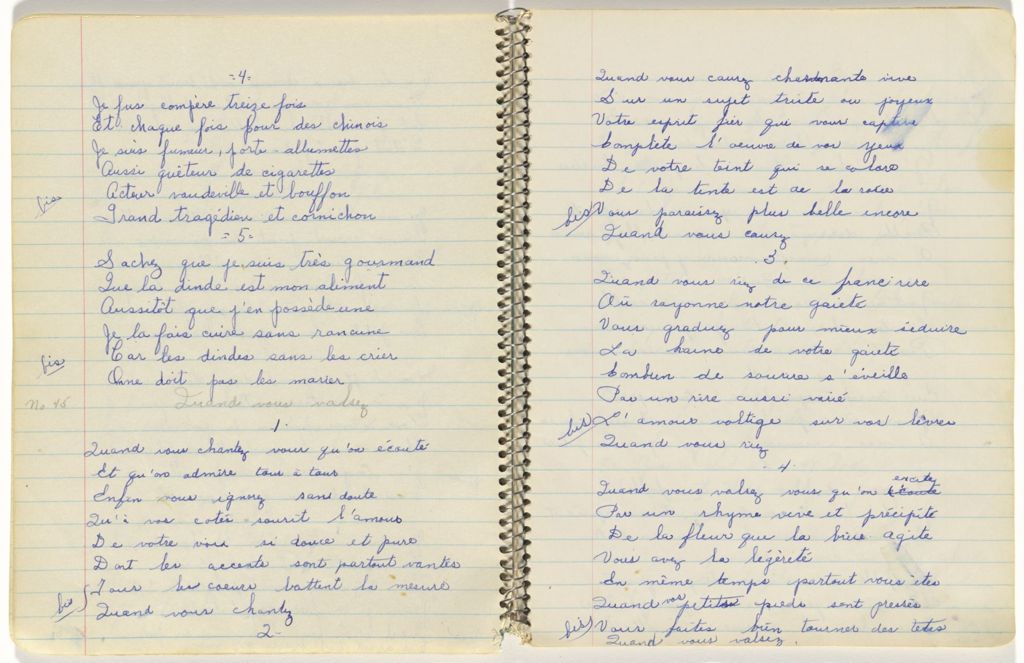 -4-
Je fus compère treize fois
Et chaque fois pour des chinois
Je suis fumeur, porte-allumettes
Aussi quêteur de cigarettes
bis Acteur vaudeville et bouffon
Grand tragédien et cornichon
-5-
Sachez que je suis très gourmand
Que la dinde est mon aliment
Aussitôt que j'en possède une
Je la fais cuire sans rancune
bis Car les dindes sans les crier
On ne doit pas les marier
No 45 Quand vous valsez
1.
Quand vous chantez vous qu'on écouté
Et qu'on admire tour à tour
Enfin vous ignorez sans doute
Qu'à vos cotés sourit l'amour
De votre voix si douce et pure
Dont les accents sont partout vantés
bis Tous les coeurs battent la mesure
Quand vous chantez
2-
Quand vous causez charmante vive
Sur un sujet triste ou joyeux
Votre esprit fier qui vous captive
Complète l'oeuvre de vos yeux
De votre teint qui se colore
De la tinte est de la rose
bis Vous paraisez plus belle encore
Quand vous causez
.3.
Quand vous riez de ce franc rire
Où rayonne notre gaieté
Vous graduez pour mieux séduire
La haine de votre gaieté
Combien de sourire s'éveille
Par un rire aussi varié
bis L'amour voltige sur vos lèvres
Quand vous riez
.4.
Quand vous valsez vous qu'on écoute excitez
Par un rhyme vive et précipité
De la fleur que la brise agite
Vous avez la légèreté
En même temps partout vous êtes
Quand vos petits pieds sont pressés
bis Vous faites bien tourner des têtes
Quand vous valsez.